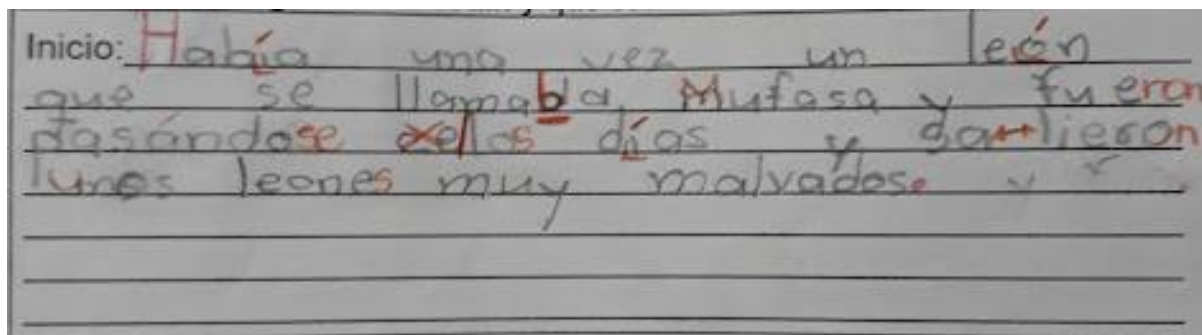 Inicio: Había una vez un león
que se llamaba Mufasa y fueron
pasándose los días y salieron
unos leones muy malvados. y